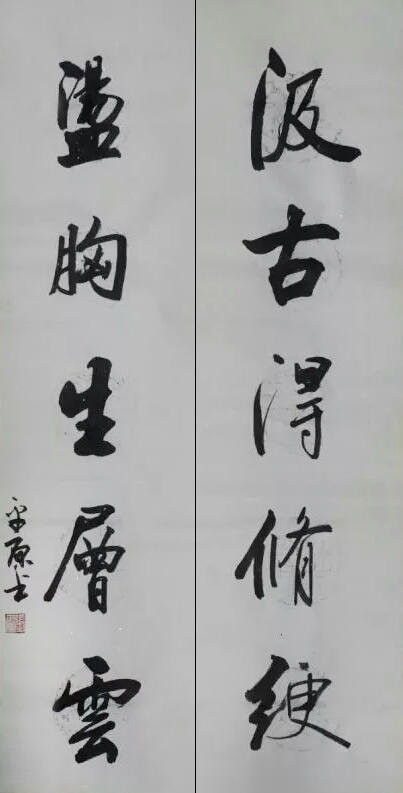 汲古得脩綆
盪胸生層雲
平原书